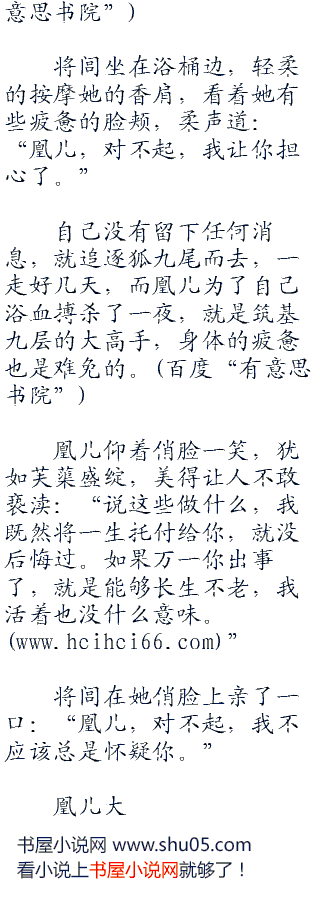 意思书院”)
将闾坐在浴桶边，轻柔
的按摩她的香肩，看着她有
些疲惫的脸颊，柔声道：
“凰儿，对不起，我让你担
心了。”
自己没有留下任何消
息，就追逐狐九尾而去，一
走好几天，而凰儿为了自己
浴血搏杀了一夜，就是筑基
九层的大高手，身体的疲惫
也是难免的。(百度“有意思
书院”)
凰儿仰着俏脸一笑，犹
如芙蕖盛绽，美得让人不敢
亵渎：“说这些做什么，我
既然将一生托付给你，就没
后悔过。如果万一你出事
了，就是能够长生不老，我
活着也没什么意味。
(www.hcihci66.com)”
将闾在她俏脸上亲了一
口：“凰儿，对不起，我不
应该总是怀疑你。”
凰儿大
书屋小说网 www.shu05.com
看小说上书屋小说网就够了！